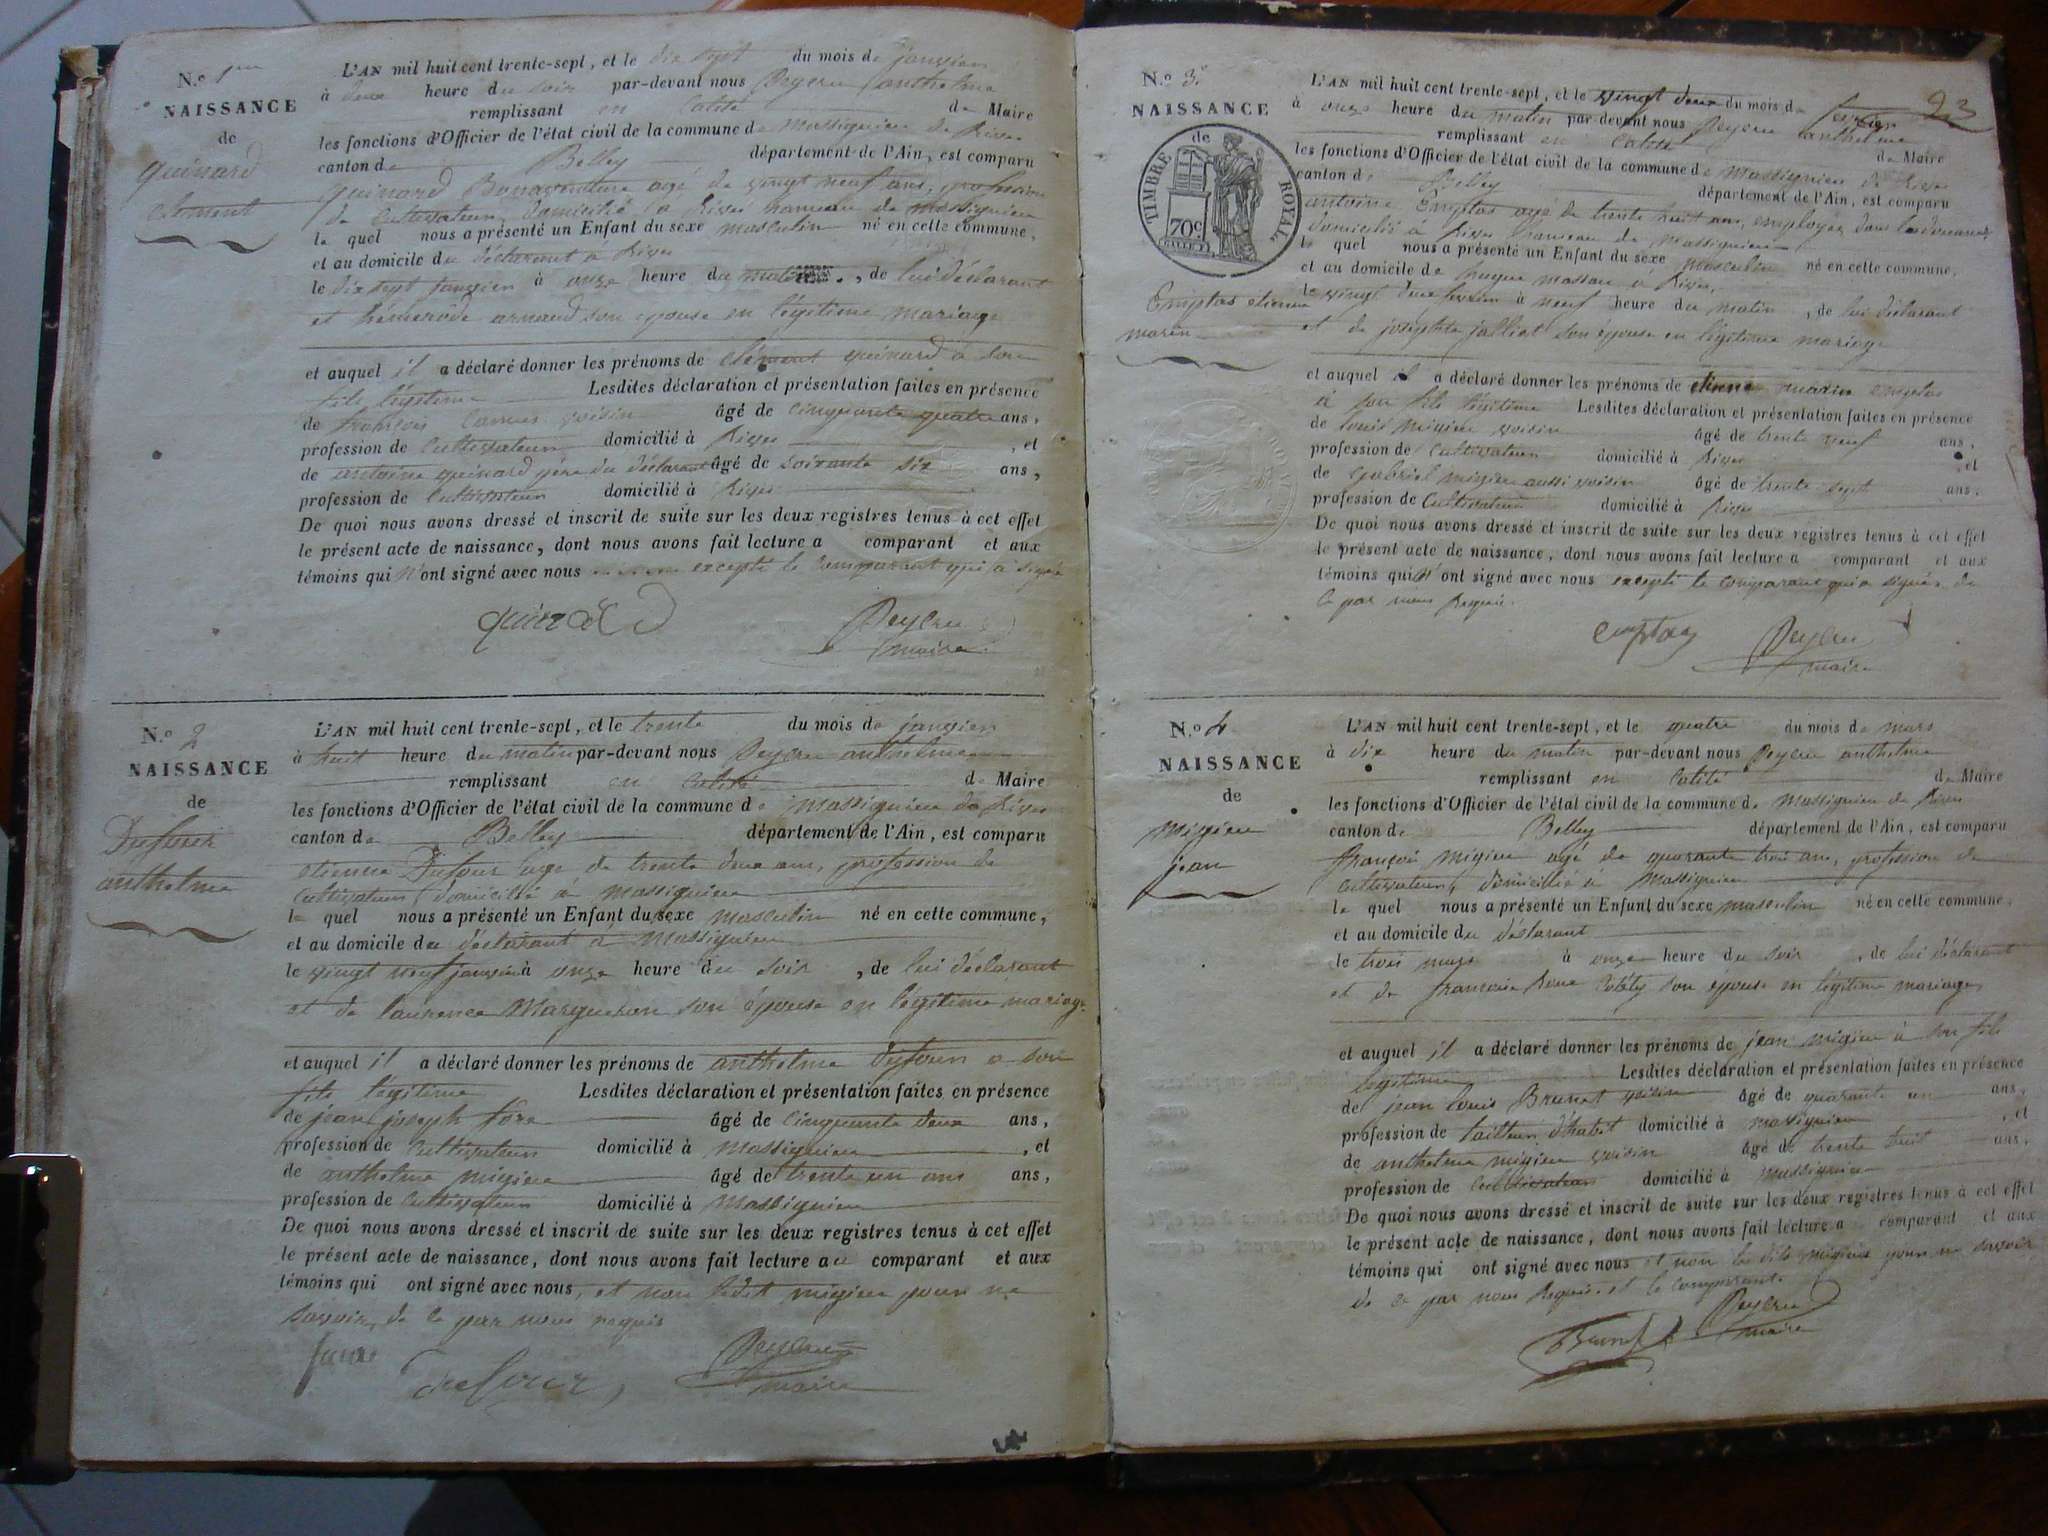 N.o 1er
NAISSANCE
de
quinard
clement
L'AN mil huit cent trente-sept, et le dix sept du mois de janvier
à deux heure du soir par-devant nous Peyeru anthelme
remplissant en calité de Maire
les fonctions d'Officier de l'état civil de la commune de Massignieu de Rives
canton de Belley département de l'Ain, est comparu
quinard Bonaventure agé de vingt neuf ans, profession
de cultivateur, domicilié à Rives hameau de Massignieu
le quel nous a présenté un Enfant du sexe masculin né en cette commune,
et au domicile du déclarant à Rives
le dix sept janvier à onze heure du matin, de lui déclarant
et arnaud son epouse en légitime mariage
et auquel il a déclaré donner les prénoms de clément quinard à son
fils légitime Lesdites déclaration et présentation faites en présence
de françois Camus voisin âgé de cinquante quatre ans,
profession de Cultivateur domicilié à Rives, et
de antoine quinard père du déclarant âgé de soixante six ans,
profession de Cultivateur domicilié à Rives
De quoi nous avons dressé et inscrit de suite sur les deux registres tenus à cet effet
le présent acte de naissance, dont nous avons fait lecture a comparant et aux
témoins qui n'ont signé avec nous excepté le comparant qui a signé
quinard Peyeru
maire
N.o 2
NAISSANCE
de
Dufour
anthelme
L'AN mil huit cent trente-sept, et le trente du mois de janvier
à huit heure du matin par-devant nous Peyeru anthelme
remplissant en calité de Maire
les fonctions d'Officier de l'état civil de la commune de Massignieu de Rives
canton de Belley département de l'Ain, est comparu
etienne Dufour age de trente deux ans, profession de
cultivateur domicilié à Massignieu
le quel nous a présenté un Enfant du sexe masculin né en cette commune,
et au domicile du déclarant à Massignieu
le vingt neuf janvier à onze heure du soir, de lui déclarant
et de laurence Marguison son épouse en légitime mariage
et auquel il a déclaré donner les prénoms de anthelme Dufour a son
fils légitime Lesdites déclaration et présentation faites en présence
de jean joseph fore âgé de cinquante deux ans,
profession de Cultivateur domicilié à Massignieu, et
de anthelme migieu âgé de trente un ans ans,
profession de Cultivateur domicilié à Massignieu
De quoi nous avons dressé et inscrit de suite sur les deux registres tenus à cet effet
le présent acte de naissance, dont nous avons fait lecture au comparant et aux
témoins qui ont signé avec nous, et non ledit migieu pour ne
savoir, de ce par nous requis
Dufour Peyeru
maire
23
N.o 3
NAISSANCE
de
TIMBRE ROYAL
70c
Emptas etienne
marin
L'AN mil huit cent trente-sept, et le vingt deux du mois de fevrier
à onze heure du matin par-devant nous Peyeru anthelme
remplissant en calité de Maire
les fonctions d'Officier de l'état civil de la commune de Massignieu de Rives
canton de Belley département de l'Ain, est comparu
antoine Emptas agé de trente huit ans, employés dans les douanes
domicilié à Rives hameau de Massignieu
le quel nous a présenté un Enfant du sexe masculin né en cette commune,
et au domicile de à Rives,
le vingt deux fevrier à neuf heure du matin, de lui déclarant
et de josephte jalliat son épouse en légitime mariage
et auquel il a déclaré donner les prénoms de etienne marin emptas
à son fils légitime Lesdites déclaration et présentation faites en présence
de louis migieu voisin âgé de trente neuf ans,
profession de Cultivateur domicilié à Rives, et
de gabriel migieu aussi voisin âgé de trente sept ans,
profession de Cultivateur domicilié à Rives
De quoi nous avons dressé et inscrit de suite sur les deux registres tenus à cet effet
le présent acte de naissance, dont nous avons fait lecture a comparant et aux
témoins qui n'ont signé avec nous excepté le comparant qui a signés de
ce par nous Requis.
emptas Peyeru
maire
N.o 4
NAISSANCE
de
migieu
jean
L'AN mil huit cent trente-sept, et le quatre du mois de mars
à dix heure du matin par-devant nous Peyeru anthelme
remplissant en calité de Maire
les fonctions d'Officier de l'état civil de la commune de Massignieu de Rives
canton de Belley département de l'Ain, est comparu
françois migieu agé de quarante trois ans, profession de
cultivateur, domicillié à Massignieu
le quel nous a présenté un Enfant du sexe masculin né en cette commune,
et au domicile du déclarant
le trois mars à onze heure du soir, de lui déclarant
et de francoise son épouse en légitime mariage
et auquel il a déclaré donner les prénoms de jean migieu à son fils
légitime Lesdites déclaration et présentation faites en présence
de jean louis Brunet voisin âgé de quarante un ans,
profession de tailleur d'habit domicilié à massignieu, et
de anthelme migieu voisin âgé de trente huit ans,
profession de Cultivateur domicilié à Massignieu
De quoi nous avons dressé et inscrit de suite sur les deux registres tenus à cet effet
le présent acte de naissance, dont nous avons fait lecture a comparant et aux
témoins qui ont signé avec nous et non les dits migieu pour ne savoir
de ce par nous Requis et le comparant
Brunet Peyeru
maire